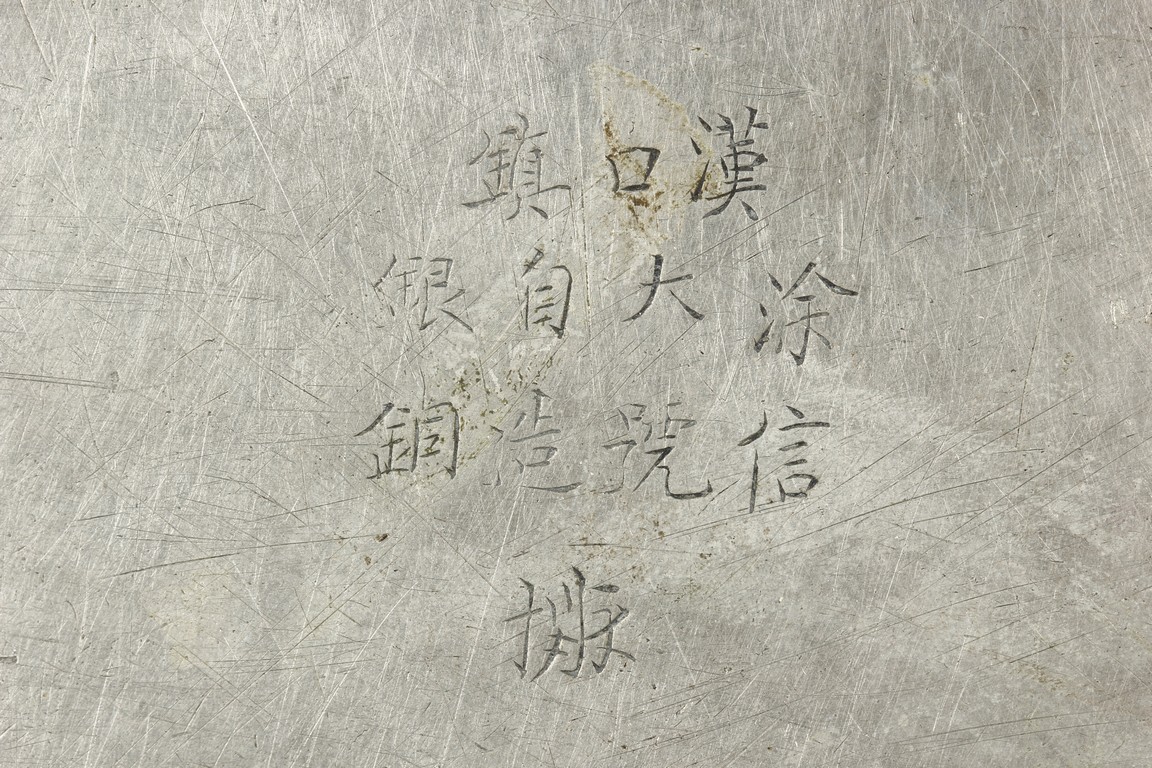 漢口鎮
涂信
大號
自造
銀銅